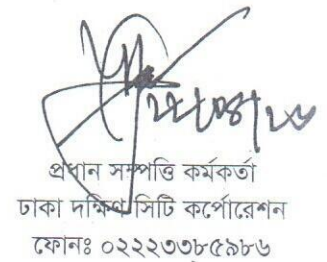 ২২/০৪/২৬
প্রধান সম্পত্তি কর্মকর্তা
ঢাকা দক্ষিণ সিটি কর্পোরেশন
ফোনঃ ০২২২৩৩৮৫৯৮৬